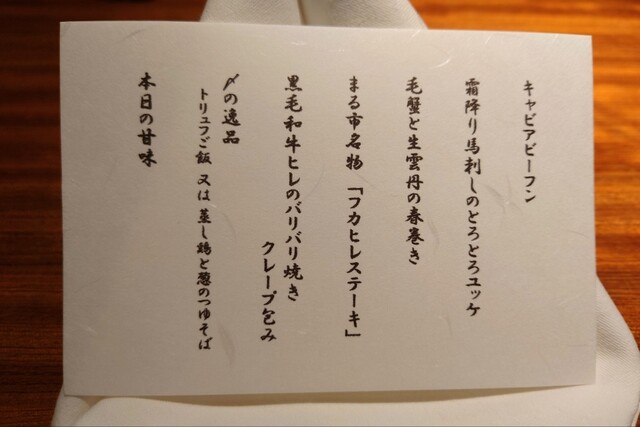 キャビアビーフン
霜降り馬刺しのとろとろユッケ
毛蟹と生雲丹の春巻き
まる市名物 「フカヒレステーキ」
黒毛和牛ヒレのバリバリ焼き
クレープ包み
〆の逸品
トリュフご飯 又は 蒸し鶏と葱のつゆそば
本日の甘味